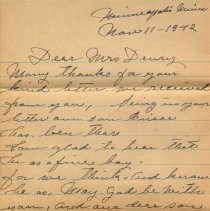 Minneapolis Minn
Nov 11-1942
Dear Mrs Drury
Many thanks for your
kind letter we received
from you, Being in your
letter our son
has been there
I am glad to hear that
he is a fine boy.
for we think. And know
he is. May. God be with
you, and our dear son